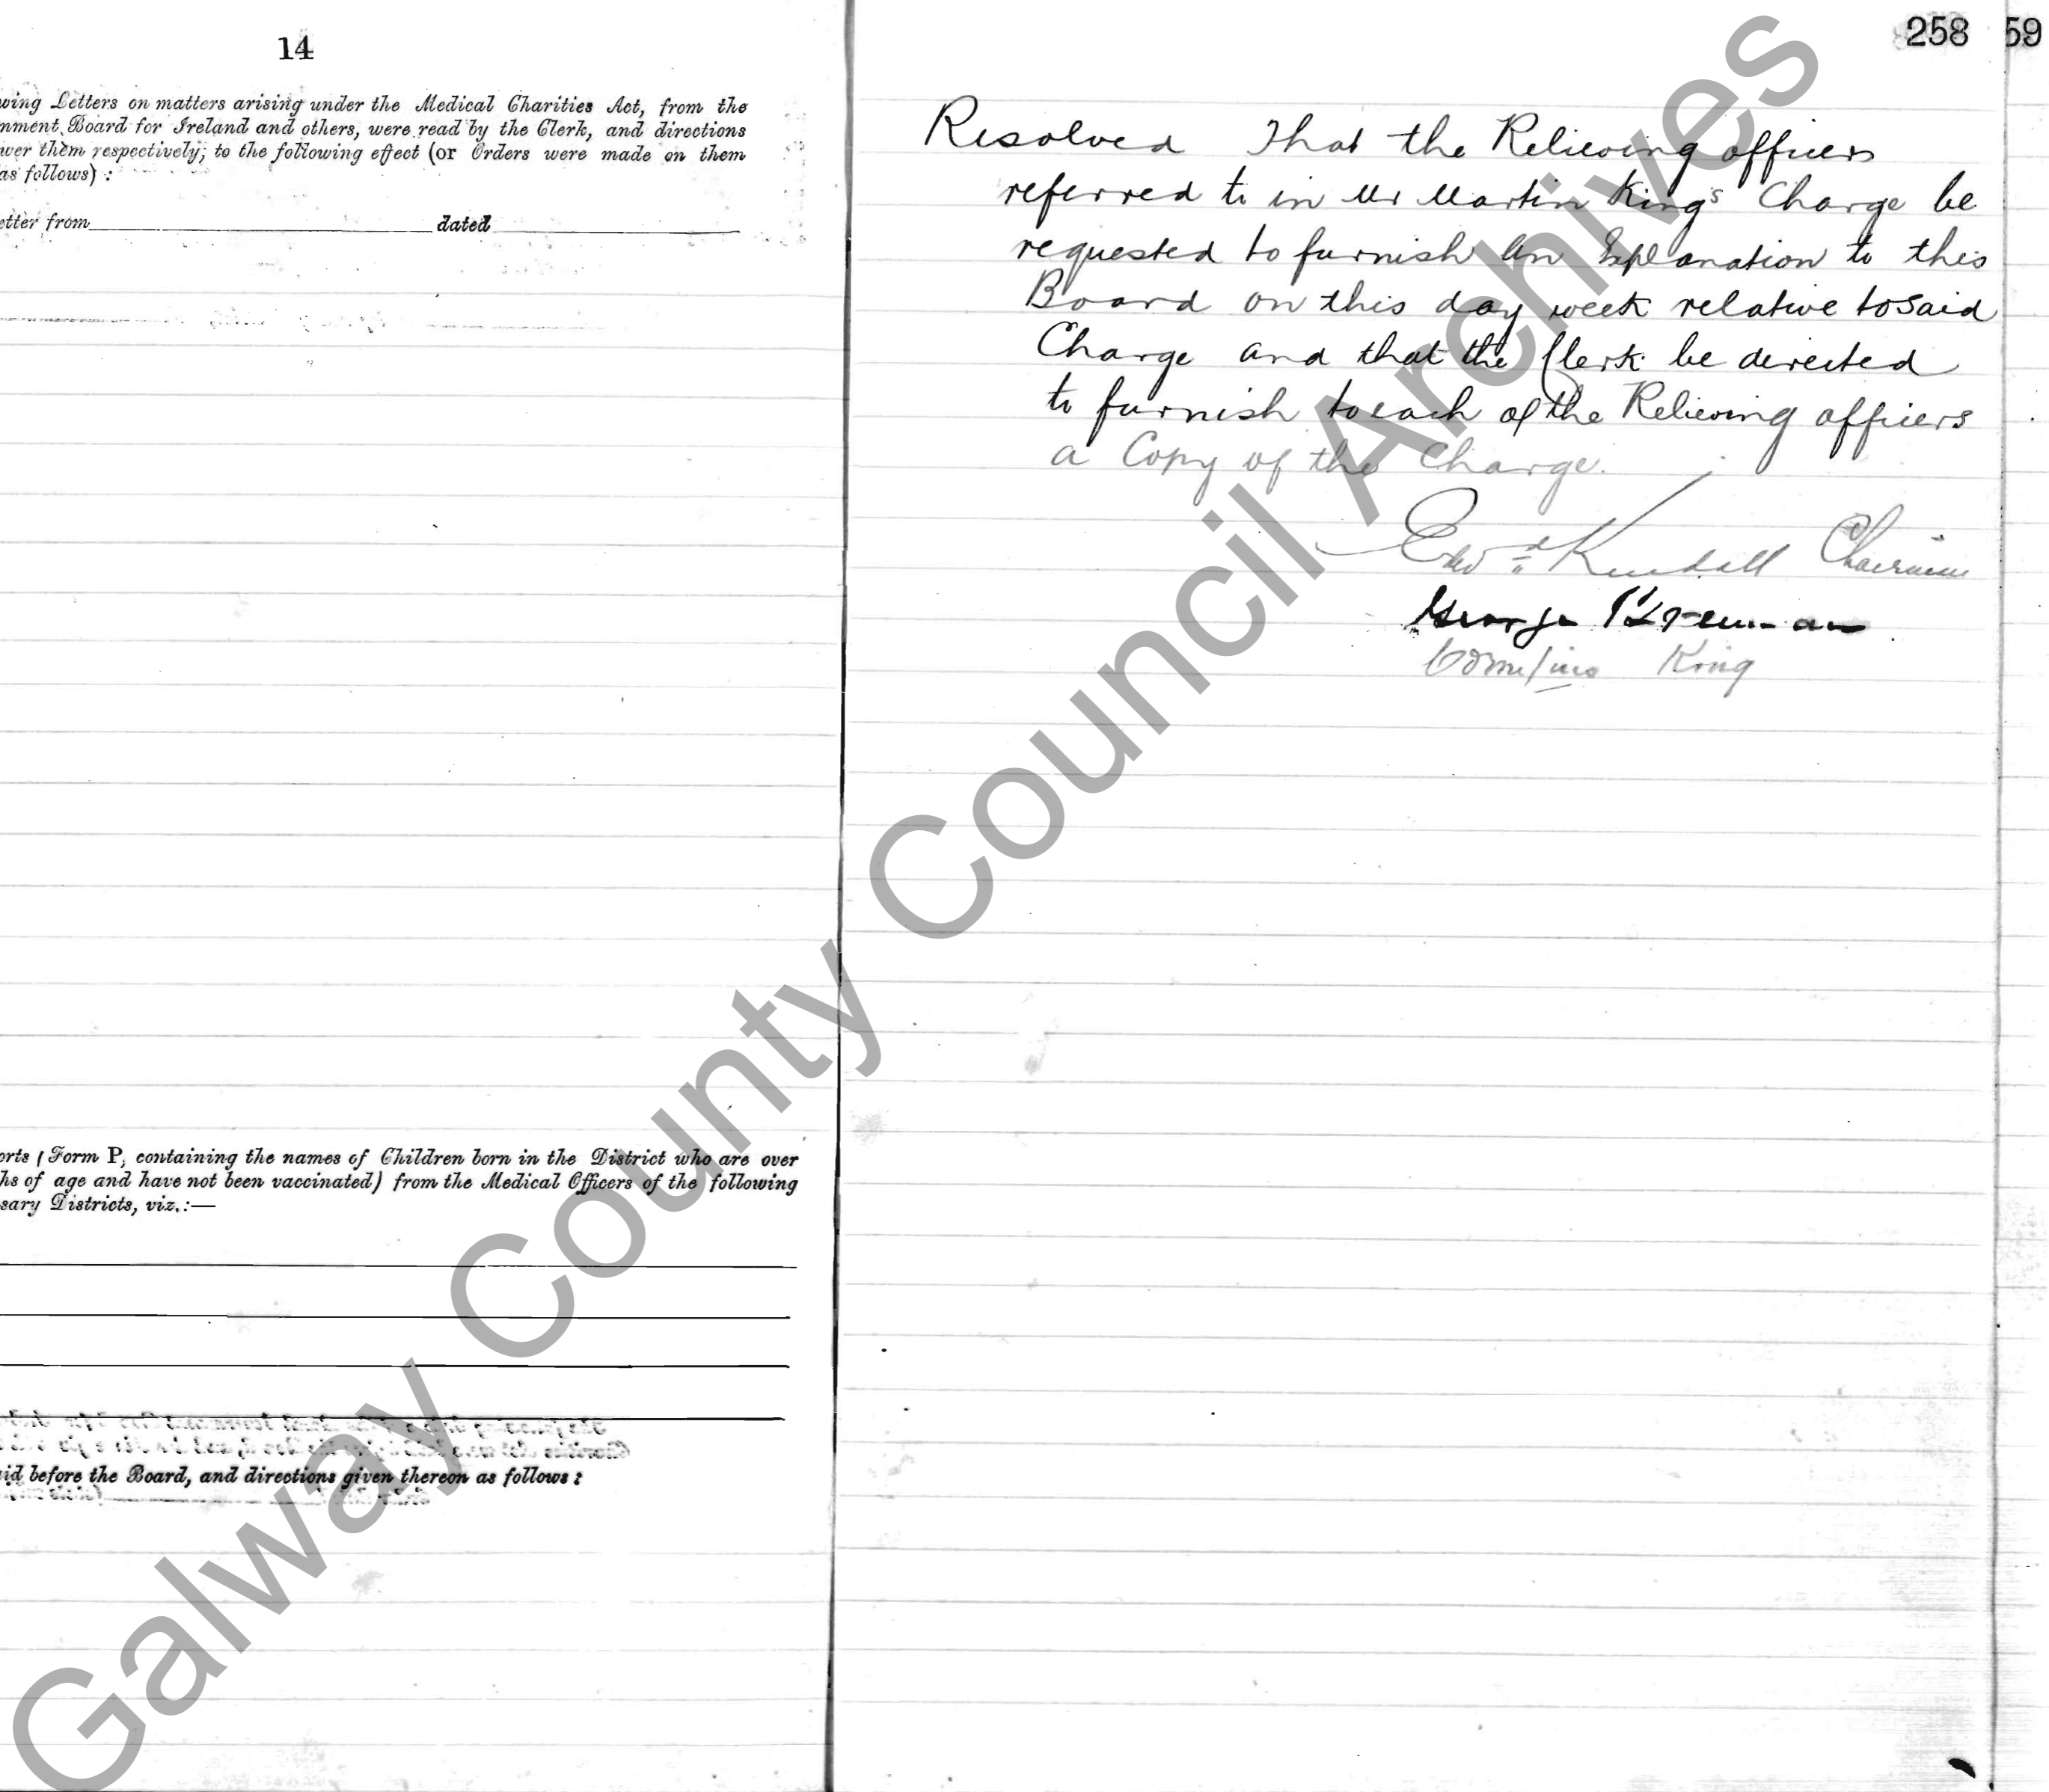 14
wing Letters on matters arising under the Medical Charities Act, from the
nment Board for Ireland and others, were read by the Clerk, and directions
wer them respectively, to the following effect (or Orders were made on them
as follows) :
etter from dated
orts (Form P, containing the names of Children born in the District who are over
hs of age and have not been vaccinated) from the Medical Officers of the following
sary Districts, viz.:—
id before the Board, and directions given thereon as follows :
258 59
Resolved That the Relieving officers
referred to in Mr Martin King's Charge be
requested to furnish an Explanation to this
Board on this day week relative to said
Charge and that the Clerk be directed
to furnish to each of the Relieving officers
a Copy of the Charge.
Edwd Kendall Chairman
George
Cornelius King
Galway County Council Archives